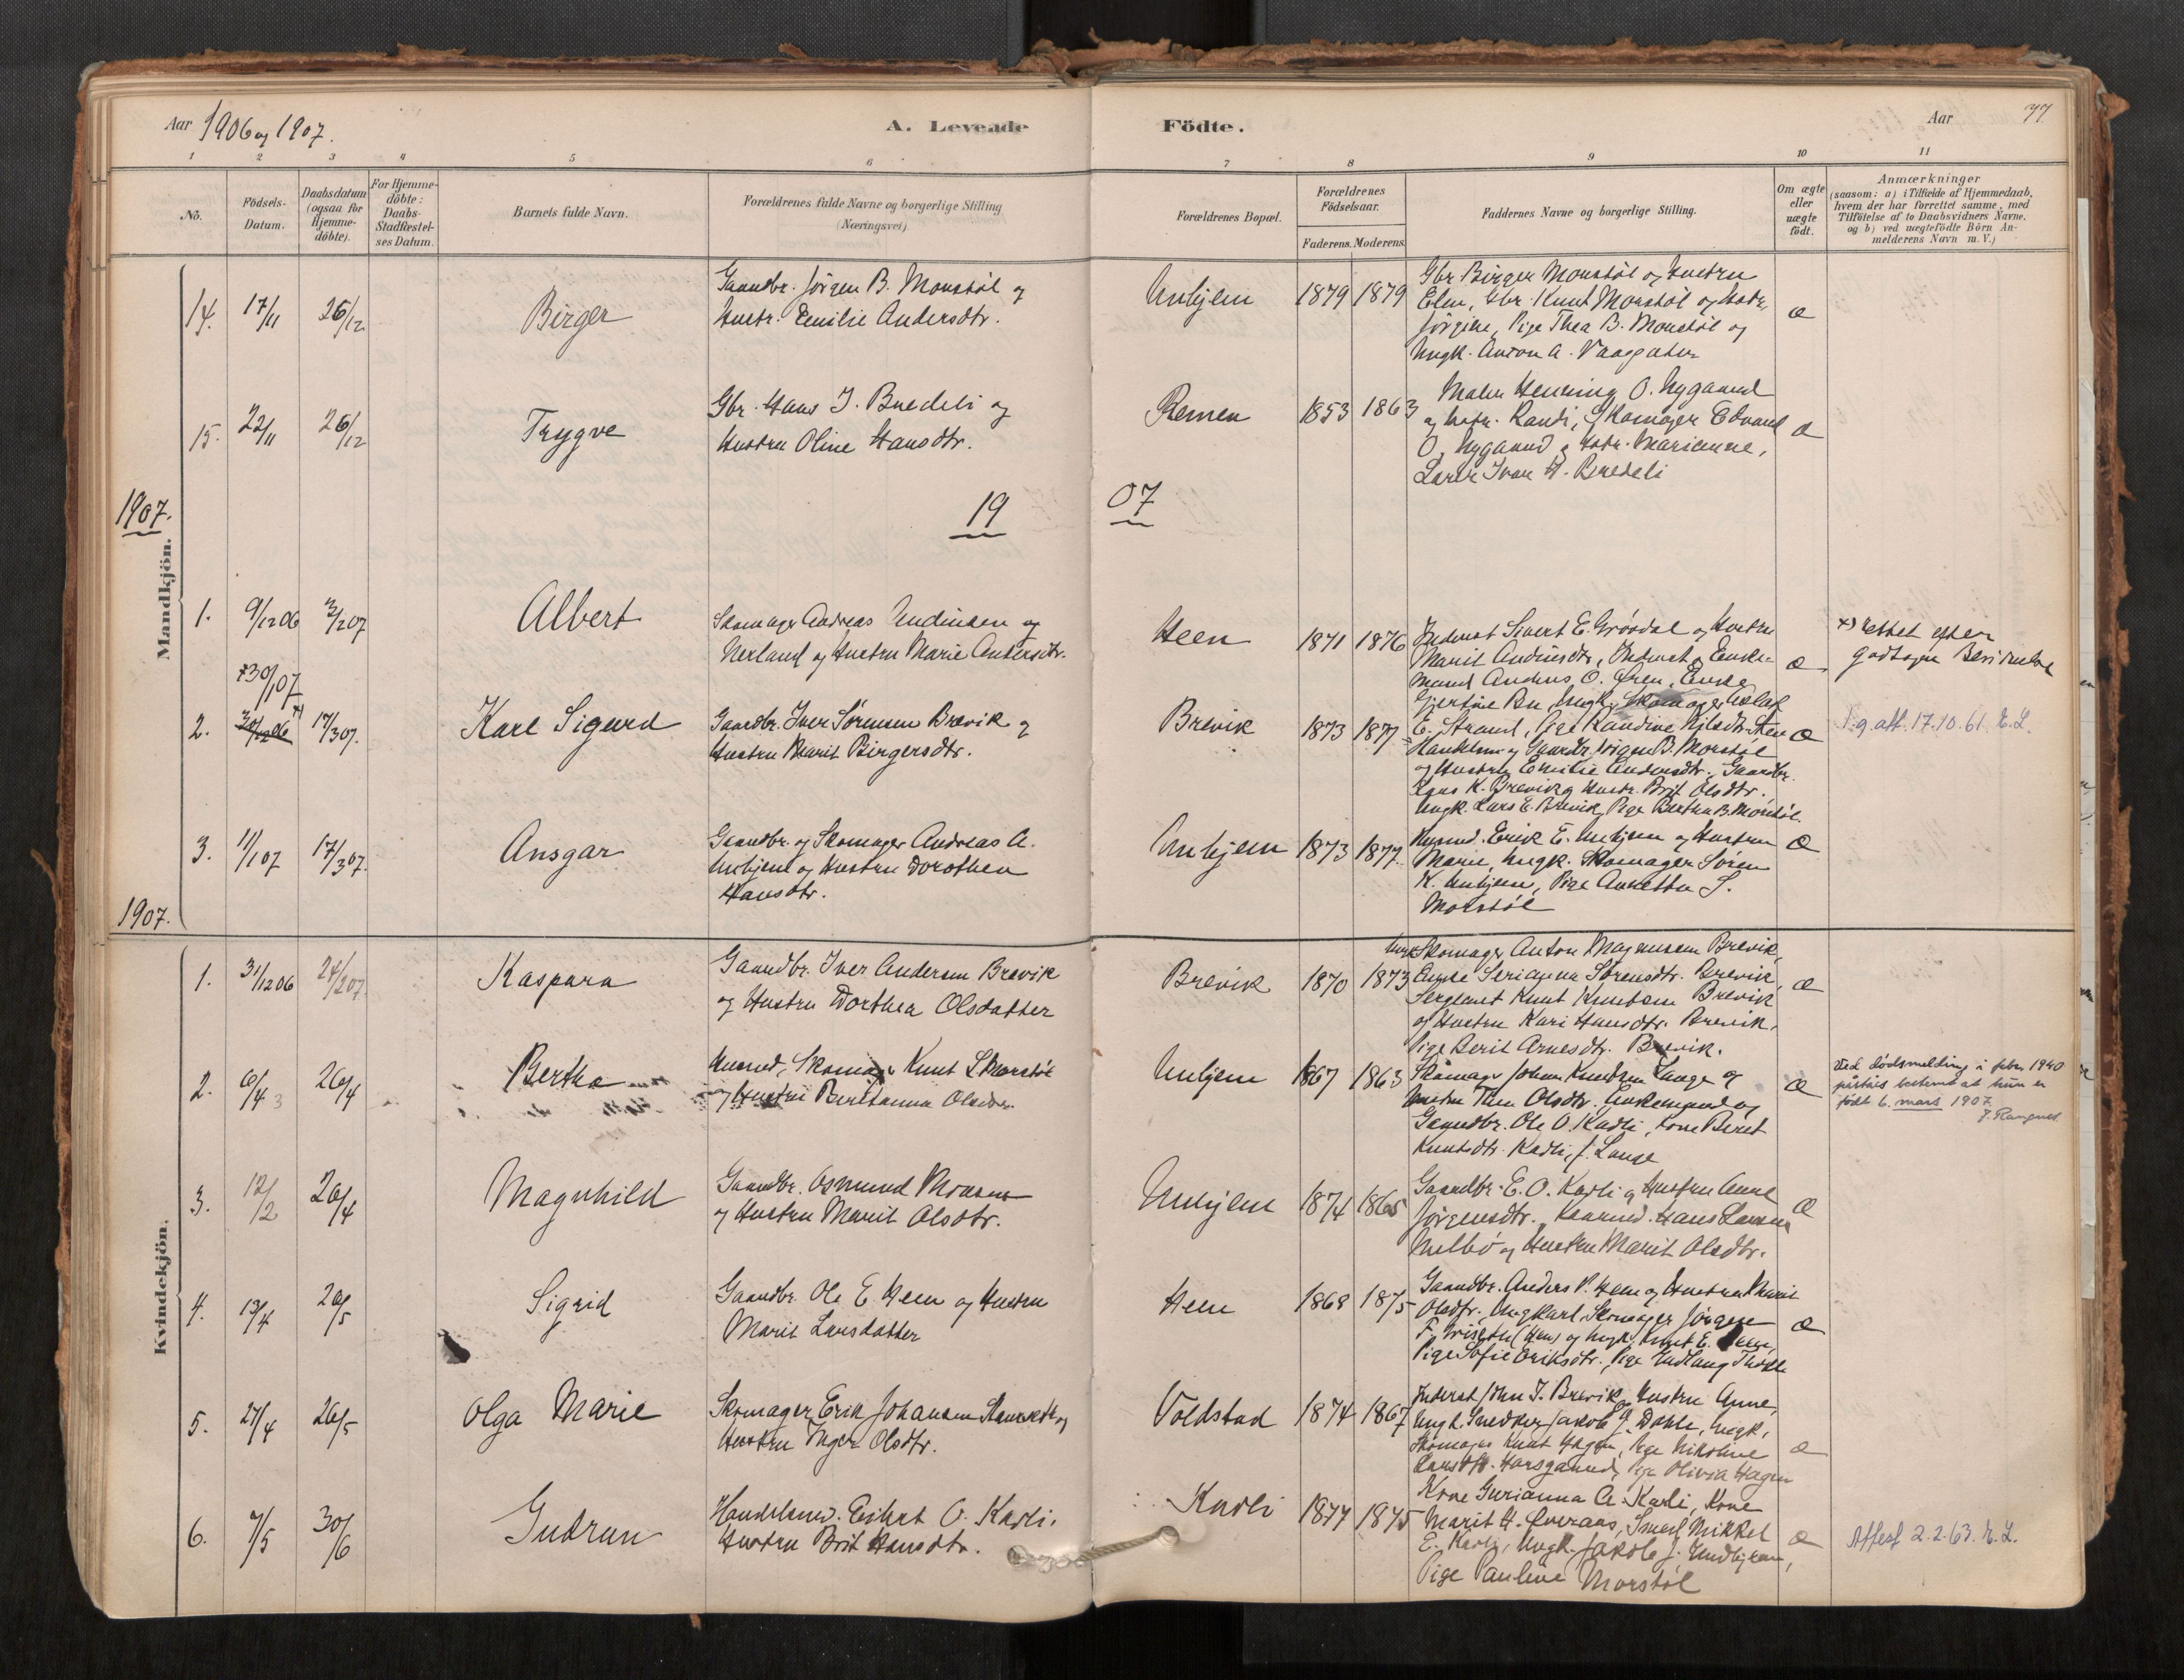 Aar 1906 og 1907.
A. Levende Födte.
Aar 77
1 2 3 4 5 6 7 8 9 10 11
No.
Födsels-Datum.
Daabsdatum (ogsaa for Hjemme-döbte).
For Hjemme-döbte: Daabs-Stadfæstel-ses Datum.
Barnets fulde Navn.
Forældrenes fulde Navne og borgerlige Stilling
(Næringsvei)
Forældrenes Bopæl.
Forældrenes Födselsaar.
Faderens. Moderens.
Faddernes Navne og borgerlige Stilling.
Om ægte eller uægte födt.
Anmærkninger
(saasom: a) i Tilfælde af Hjemmedaab,
hvem der har forrettet samme, med
Tilföielse af to Daabsvidners Navne,
og b) ved uægtefödte Börn An-
melderens Navn m. V.)
Mandkjön.
14. 17/11 26/12 Birger
Gaardbr. Jörgen B. Morstöl og
Hustr. Emilie Andersdtr.
1879 1879
Gbr. Birger Morstöl og Hustru
Elen, Gbr. Knut Morstöl og Hstr.
Jörgine, Pige Thea B. Morstöl og
Ungk. Anton A.
æ
15. 22/11 26/12 Trygve
Gbr. Hans J. Bredeli og
Hustru Oline Hansdtr.
Remen 1853 1863
Maler Henning O. Nygaard
og Hstr. Randi, Skomager Edvard
O. Nygaard og Hstr. Marianne,
Lærer Ivar H. Bredeli
æ
1907.
19 07
1. 9/12 06 3/2 07 Albert
Skomager Andreas og
Nerland og Hustru Marie Andersdtr.
Heen 1871 1876
Inderst Sivert E. Grövdal og Hustru
Marit Andersdtr., Inderst og Enke-
mand Anders O. Øren, Enke
æ
x) rettet efter
godtagne
x 30/1 07
2. 30/12 06 x) 17/3 07. Karl Sigurd
Gaardbr. Iver Sørensen Brevik og
Hustru Marit Birgersdtr.
Brevik 1873 1877
Gaardbr. Jörgen B. Morstöl
og Hustru Emilie Andersdtr., Gaardbr.
K. Brevik og Hustr. Brit Olsdtr.
Ungk. Lars E. Brevik, Pige B. Morstöl.
æ
att. 17.10.61. E.L.
3. 11/1 07 17/3 07. Ansgar
Gaardbr. og Skomager Andreas A.
og Hustru Dorothea
Hansdtr.
1873 1877
Erik E. og Hustru
Marie, Ungk. Skomager Sören
K. Pige S.
Morstöl
æ
1907.
Kvindekjön.
1. 31/12 06 24/2 07 Kaspara
Gaardbr. Iver Andersen Brevik
og Hustru Dorthea Olsdatter
Brevik 1870 1873
Ungk. Skomager Anton Magnusen Brevik,
Enke Serianna Sörensdtr. Brevik,
Sergeant Knut Knutsen Brevik
og Hustru Kari Hansdtr. Brevik,
Pige Berit Arnesdtr. Brevik.
æ
2. 6/4 3 26/4 Bertha
Skomager Knut S. Morstöl
og Hustru Beritanna Olsdtr.
1867 1863
Skomager Johan Knudsen Lange og
Hustru Thea Olsdtr., Enkemand og
Gaardbr. Ole O. Karli, Kone Beret
Knutsdtr. Karli, f. Lange
æ
Ved dødsmelding i febr. 1940
påståis bestemt at hun er
født 6. mars 1907.
3. 12/2 26/4 Magnhild
Gaardbr. Osmund
og Hustru Marit Olsdtr.
1874 1865
Gaardbr. E. O. Karli og Hustru Anne
Jörgensdtr., Hans Larsen
og Hustru Marit Olsdtr.
æ
4. 13/4 26/5 Sigrid
Gaardbr. Ole E. Heen og Hustru
Marit Larsdatter
Heen 1868 1875
Gaardbr. Anders P. Heen og Hustru Marit
Olsdtr., Ungkarl Skomager Jörgen
F. (Hen) og Ungk. Knut E. Heen,
Pige Sofie Eriksdtr., Pige
æ
5. 27/4 26/5 Olga Marie
Skomager Erik Johansen og
Hustru Inger Olsdtr.
Voldstad 1874 1867
Inderst John J. Brevik og Hustru Anne,
Ungk. Snedker Jakob J. Dahle, Ungk.
Skomager Knut Hagen, Pige Nikoline
Pige Olivia Hagen
æ
6. 7/5 30/6 Gudrun
Handelsmd. Eilert O. Karli,
Hustru Brit Hansdtr.
Karli 1877 1875
Kone Gurianna A. Karli, Kone
Marit H. Øveraas, Smed Mikkel
E. Karli, Ungk. Jakob J.
Pige Pauline Morstöl
æ
Attest 2.2.63. E.L.